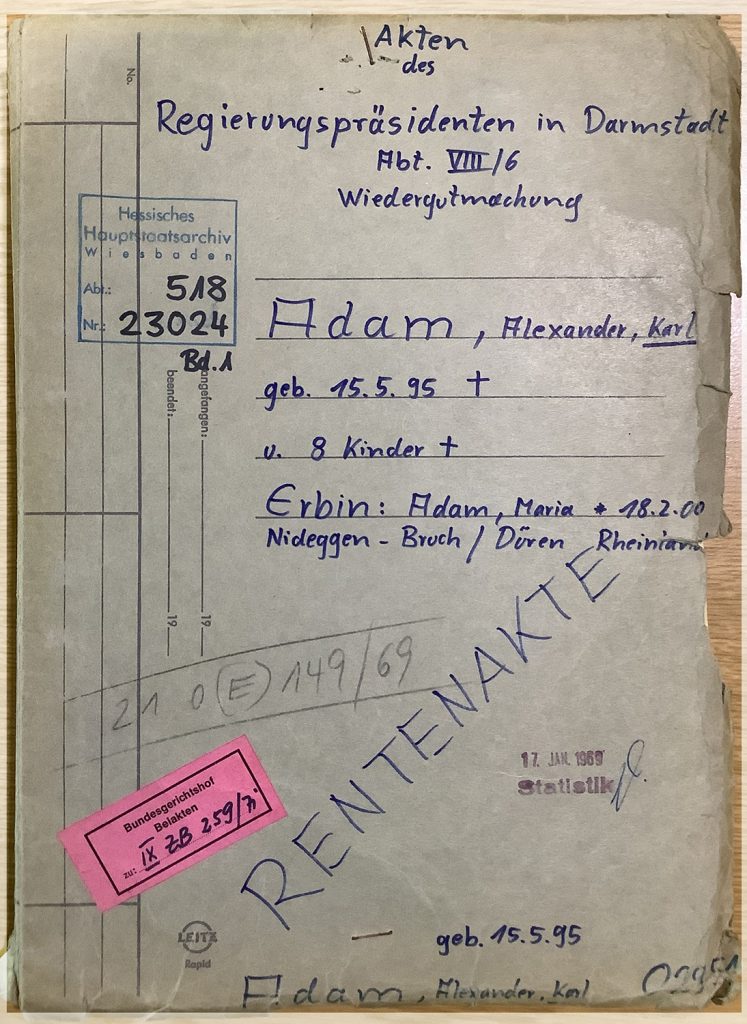 Akten
des
Regierungspräsidenten in Darmstadt
Abt. VIII/6
Wiedergutmachung
No.
Hessisches
Hauptstaatsarchiv
Wiesbaden
Abt.: 518
Nr.: 23024
Bd. 1
Adam, Alexander, Karl
geb. 15.5.95 †
u. 8 Kinder †
Erbin: Adam, Maria * 18.2.00
Nideggen - Bruch / Düren Rheinland
angefangen: 19
beendet: 19
210 (E) 149/69
RENTENAKTE
17. JAN. 1969
Statistik
Bundesgerichtshof
Beiakten
zu: IX ZB 259/71
LEITZ
Rapid
geb. 15.5.95
Adam, Alexander, Karl